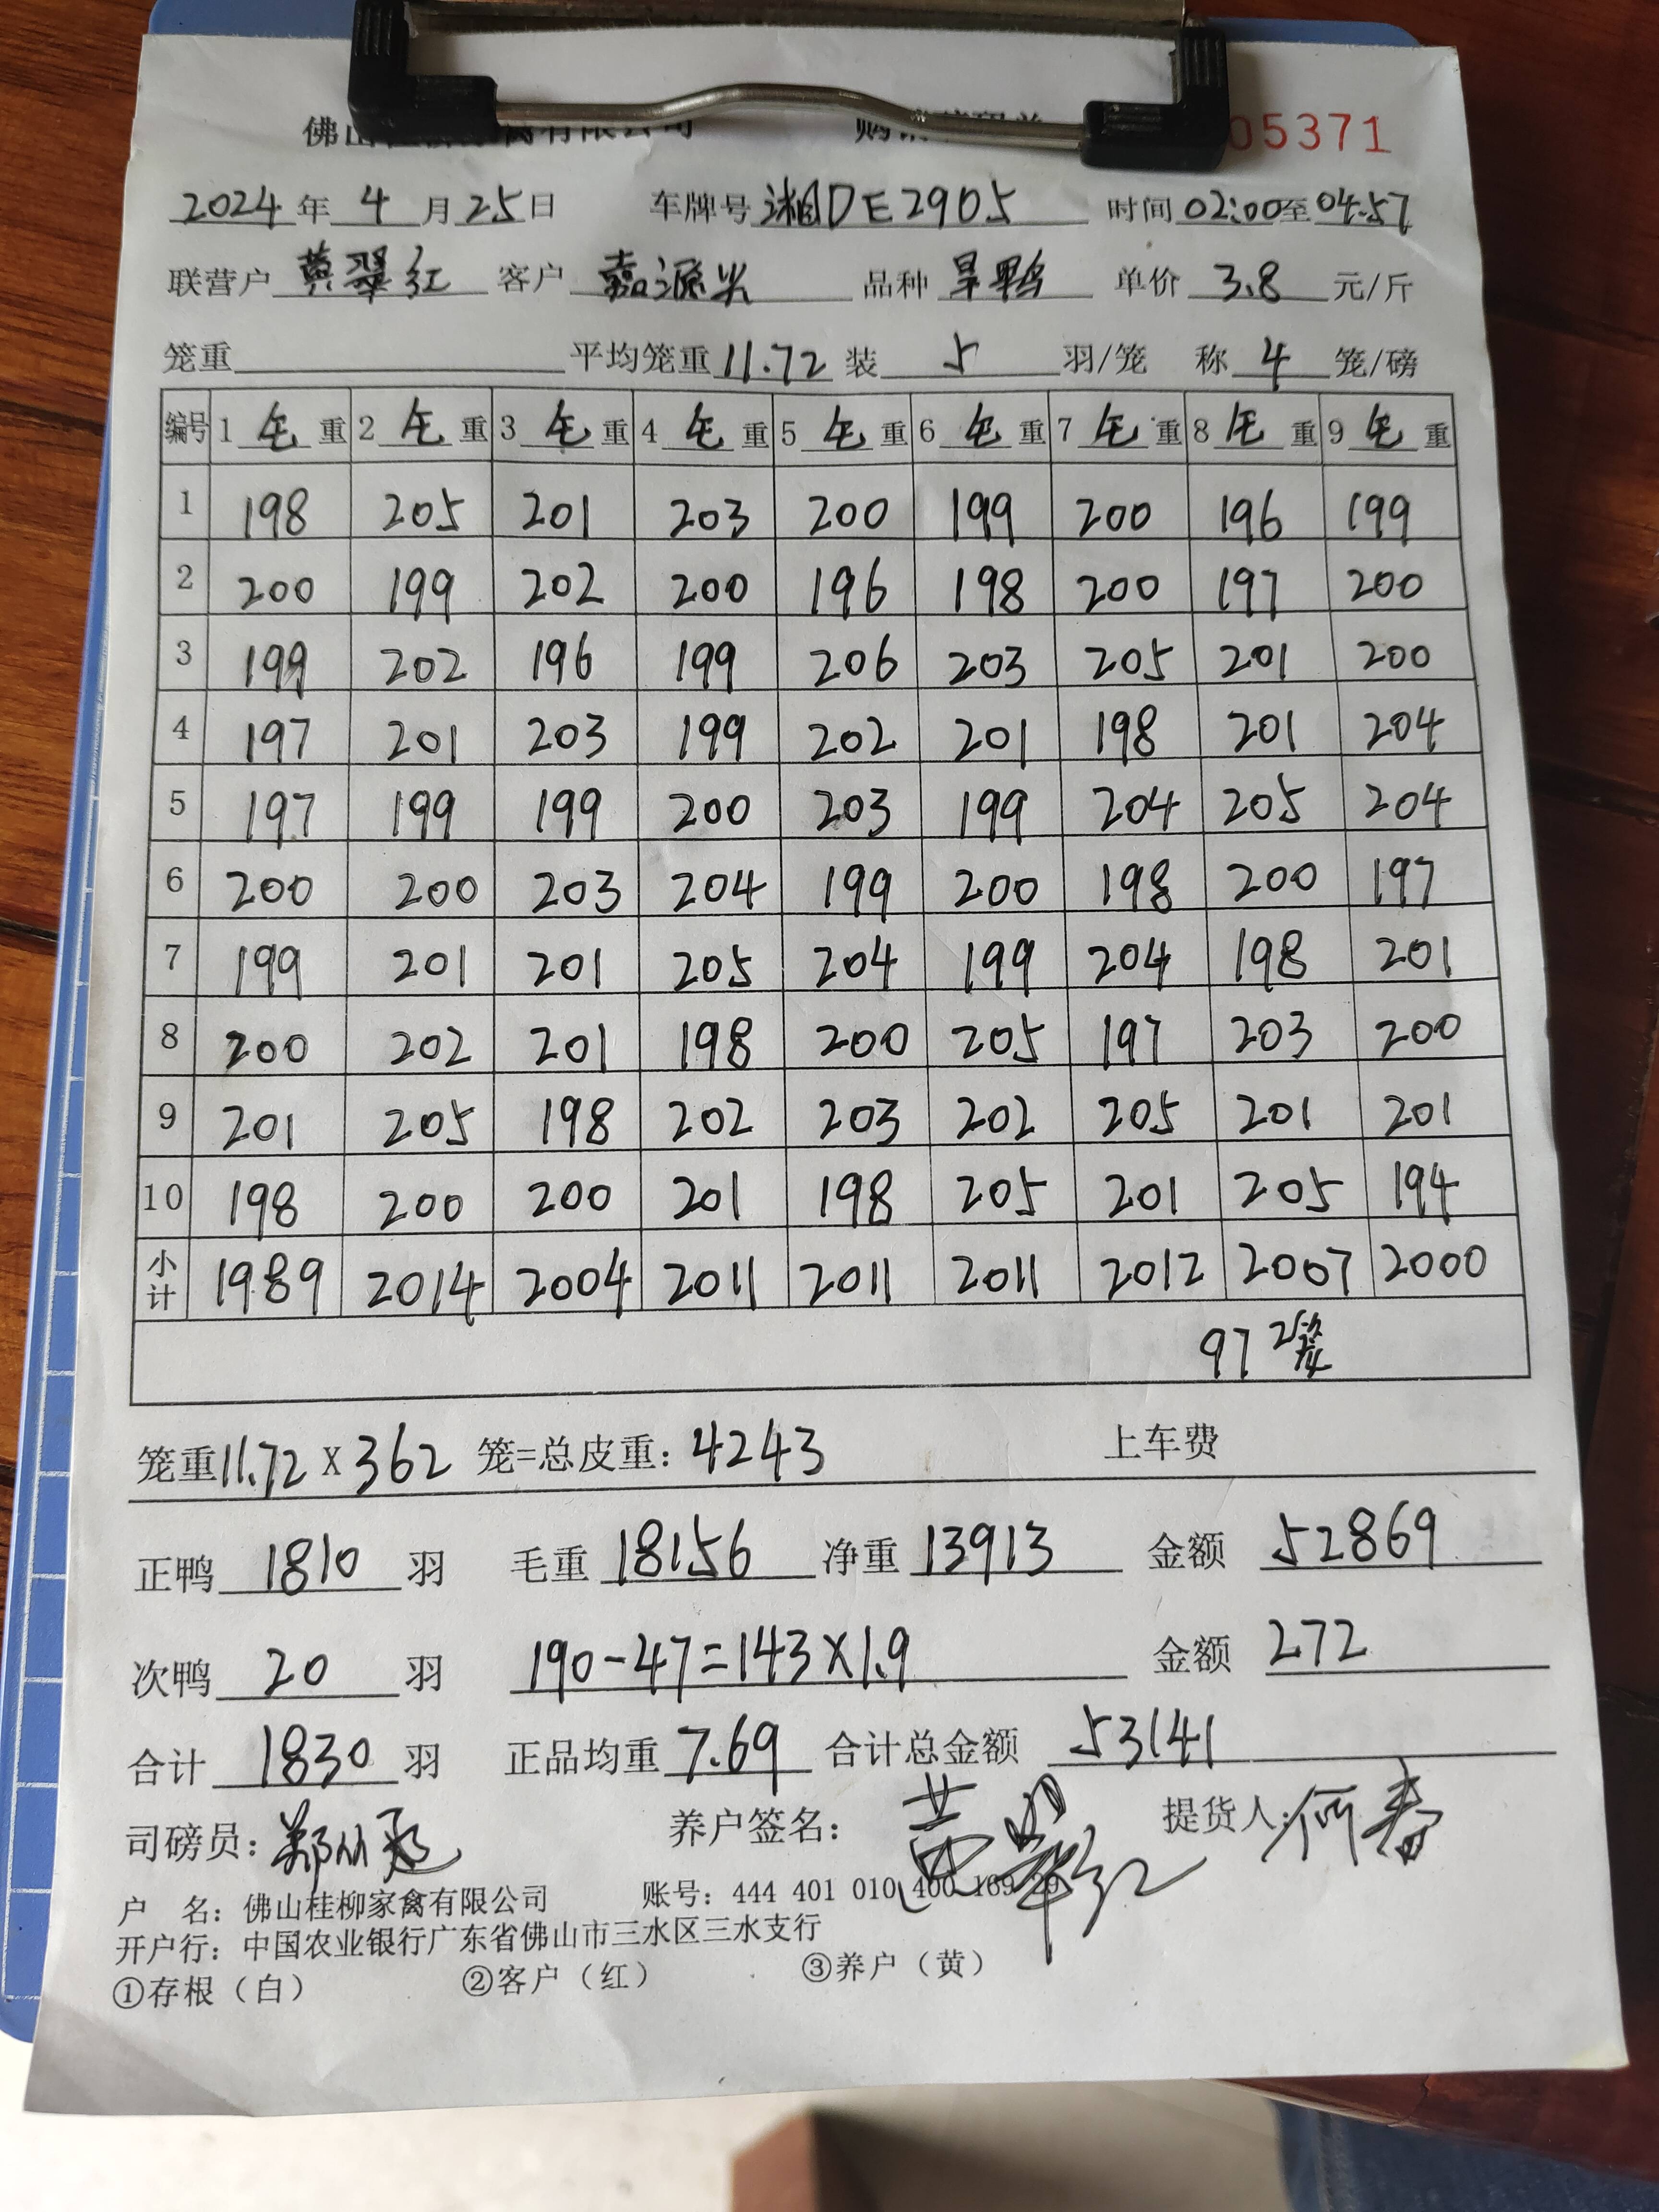 佛山 有限公司 05371
2024年4月25日 车牌号湘DE2905 时间02:00至04:57
联营户 黄翠红 客户 嘉源兴 品种 旱鸭 单价 3.8 元/斤
笼重 平均笼重11.72 装 5 羽/笼 称 4 笼/磅
编号 1 毛 重 2 毛 重 3 毛 重 4 毛 重 5 毛 重 6 毛 重 7 毛 重 8 毛 重 9 毛 重
1 198 205 201 203 200 199 200 196 199
2 200 199 202 200 196 198 200 197 200
3 199 202 196 199 206 203 205 201 200
4 197 201 203 199 202 201 198 201 204
5 197 199 199 200 203 199 204 205 204
6 200 200 203 204 199 200 198 200 197
7 199 201 201 205 204 199 204 198 201
8 200 202 201 198 200 205 197 203 200
9 201 205 198 202 203 202 205 201 201
10 198 200 200 201 198 205 201 205 194
小计 1989 2014 2004 2011 2011 2011 2012 2007 2000
97 2笼
笼重11.72 X 362 笼=总皮重：4243 上车费
正鸭 1810 羽 毛重 18156 净重 13913 金额 52869
次鸭 20 羽 190-47=143X1.9 金额 272
合计 1830 羽 正品均重 7.69 合计总金额 53141
司磅员： 养户签名：黄翠红 提货人：何春
户 名：佛山桂柳家禽有限公司 账号：444 401 010 400 169 29
开户行：中国农业银行广东省佛山市三水区三水支行
①存根（白） ②客户（红） ③养户（黄）